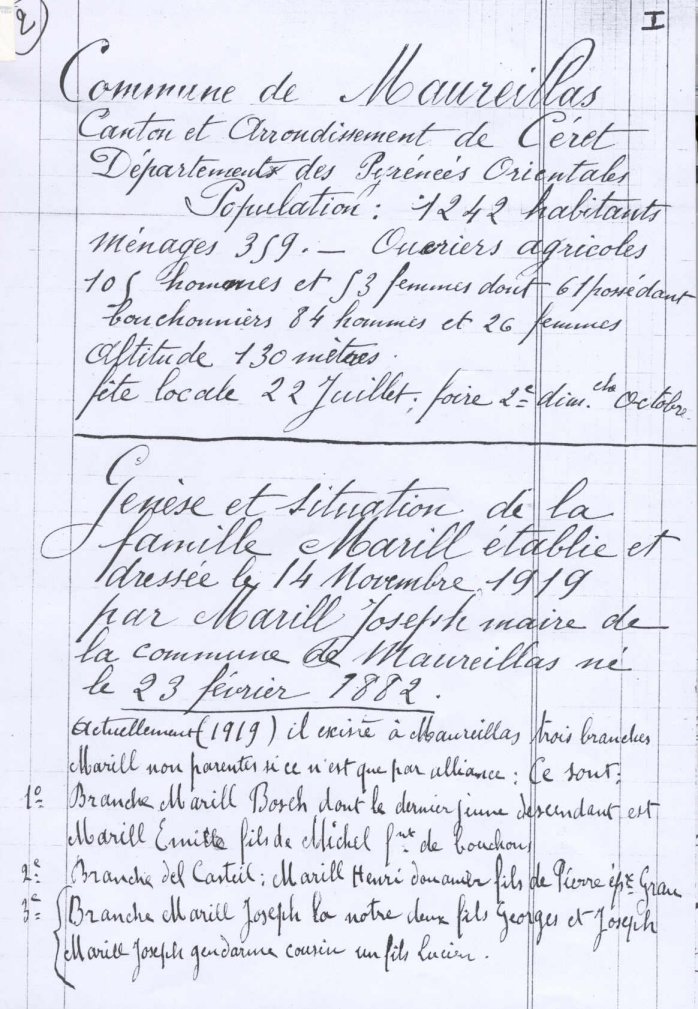 2
I
Commune de Maureillas
Canton et Arrondissement de Céret
Départements des Pyrénées Orientales
Population : 1242 habitants
Ménages 359. — Ouvriers agricoles
105 hommes et 53 femmes dont 61 possédant
bouchonniers 84 hommes et 26 femmes
Altitude 130 mètres.
fête locale 22 Juillet ; foire 2e dim. de Octobre.
Genèse et situation de la
famille Marill établie et
dressée le 14 Novembre 1919
par Marill Joseph maire de
la commune de Maureillas né
le 23 février 1882.
Actuellement (1919) il existe à Maureillas trois branches
Marill non parentes si ce n'est que par alliance : Ce sont :
1o Branche Marill Bosch dont le dernier jeune descendant est
Marill Emile fils de Michel fnt de bouchons
2e Branche del Casteil : Marill Henri douanier fils de Pierre épx Grau
3e Branche Marill Joseph la notre deux fils Georges et Joseph
Marill Joseph gendarme cousin un fils Lucien.